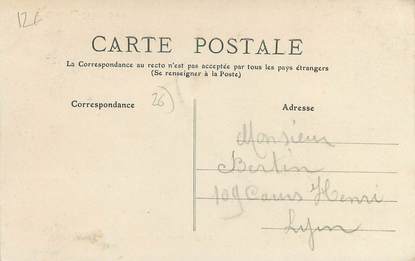 12€
CARTE POSTALE
La Correspondance au recto n'est pas acceptée par tous les pays étrangers
(Se renseigner à la Poste)
Correspondance
26)
Adresse
Monsieur
Bertin
109 Cours Henri
Lyon